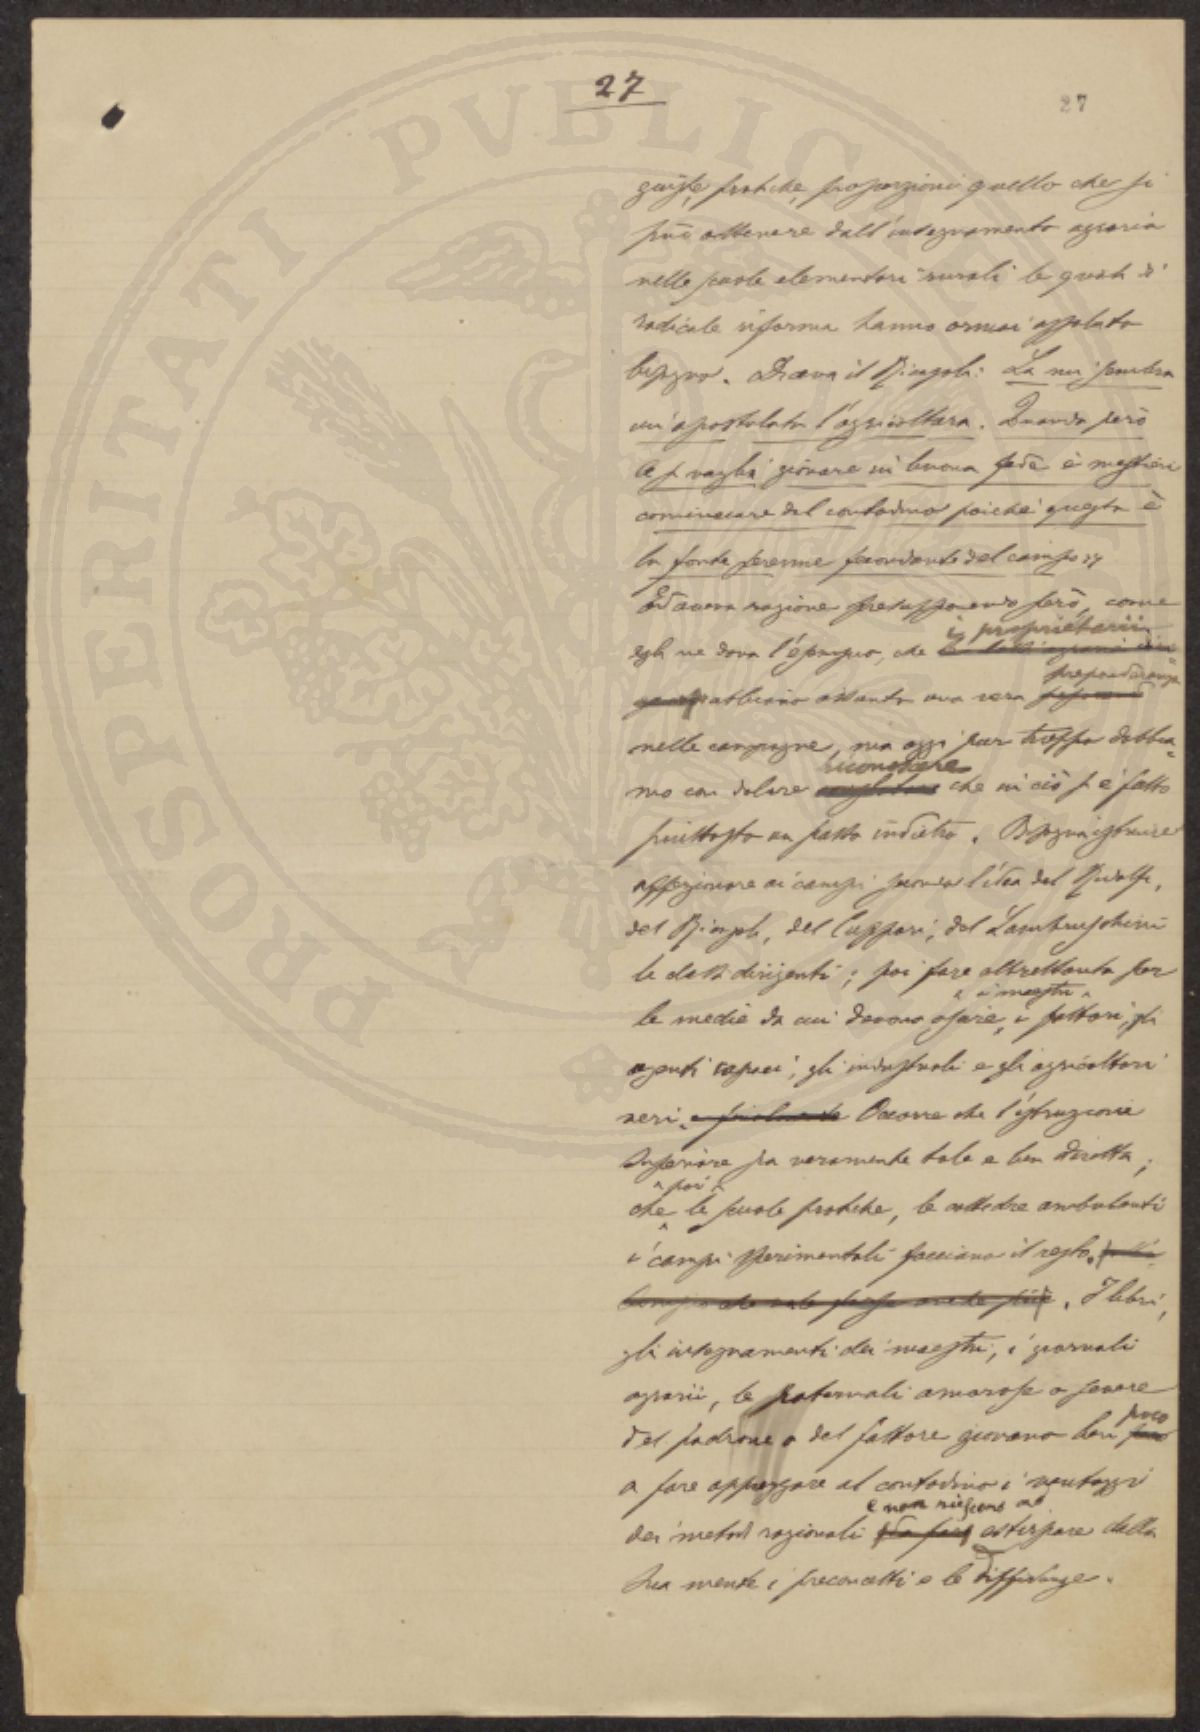 27
27
giuste, pratiche, proporzioni quello che si
può ottenere dall'insegnamento agrario
nelle scuole elementari rurali le quali di
radicale riforma hanno ormai assoluto
bisogno. Diceva il Ricasoli: La mi sembra
un'apostolato l'agricoltura. Quando però
le si voglia giovare in buona fede è mestieri
cominciare dal contadino poiché questa è
la fonte perenne fecondante del campo »
Ed aveva ragione presupponendo però, come
egli ne dava l'esempio, che i proprietarii
abbiano assunto una vera preponderanza
nelle campagne, ma oggi pur troppo dobbia-
mo con dolore riconoscere che in ciò si è fatto
piuttosto un passo indietro. Bisogna istruire
affezionare ai campi secondo l'idea del Ridolfi,
del Ricasoli, del Cuppari, del Lambruschini
le classi dirigenti; poi fare altrettanto per
le medie da cui devono uscire, i maestri i fattori, gli
agenti capaci, gli industriali e gli agricoltori
veri. Occorre che l'istruzione
Superiore sia veramente tale e ben diretta;
che poi le scuole pratiche, le cattedre ambulanti
i campi sperimentali facciano il resto.
I libri,
gli insegnamenti dei maestri, i giornali
agrarii, le paternali amorose o severe
del padrone o del fattore giovano ben poco
a fare apprezzare al contadino i vantaggi
dei metodi razionali e non riescono ad estirpare dalla
sua mente i preconcetti e le diffidenze.